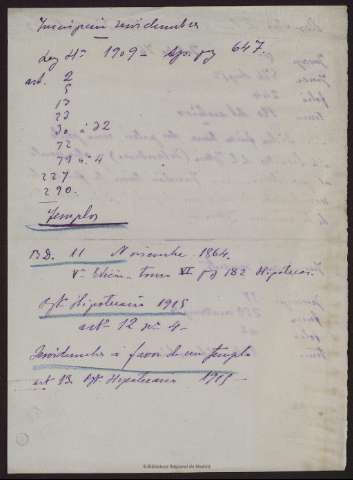 Inscripción servidumbre
Ley H.ª 1909 - Ap. pg 647.
art. 2
5
13
23
30 á 32
72
79 nº 4
227
290.
Templos
R.D. 11 Noviembre 1864.
tomo VI pg 182 Hipotecar.
Rgto Hipotecario 1915
artº 12 nº 4 -
Servidumbre á favor de un templo
art 13 Rgto Hipotecario 1915 -
Biblioteca Regional de Madrid